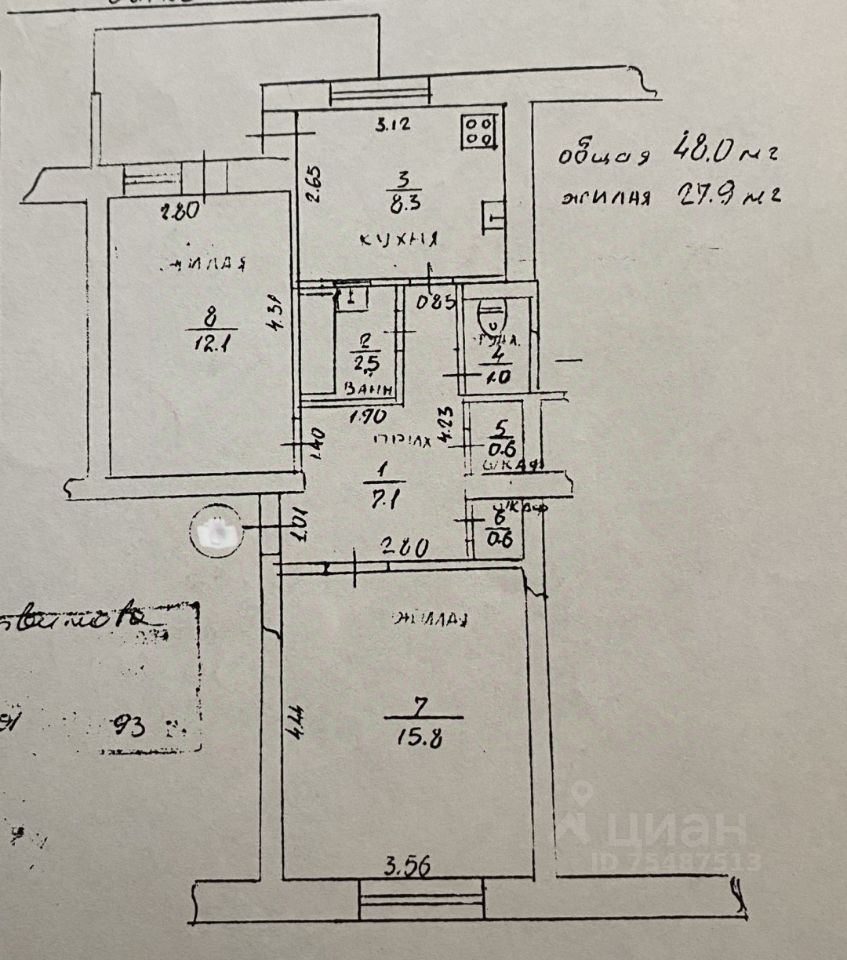 3.12
общая 48.0 м2
жилая 27.9 м2
2.65
3
8.3
КУХНЯ
2.80
ЖИЛАЯ
8
12.1
4.31
0.85
2
2.5
ВАНН
1.70
4
1.0
4.23
1.40
5
0.6
ШКАФ
1
7.1
1.01
ШКАФ
6
0.6
2.80
ЖИЛАЯ
7
15.8
4.44
93
3.56
циан
ID 75487513